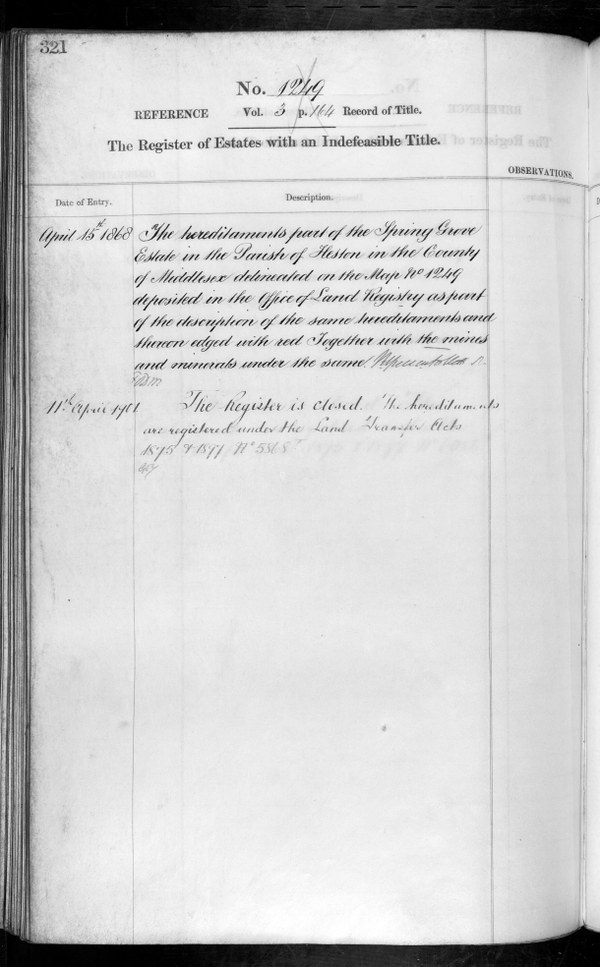 321
No. 1249
REFERENCE Vol. 3 p. 164 Record of Title.
The Register of Estates with an Indefeasible Title.
OBSERVATIONS.
Date of Entry.
Description.
April 15th 1868 The hereditaments part of the Spring Grove
Estate in the Parish of Heston in the County
of Middlesex delineated on the Map No 1249
deposited in the Office of Land Registry as part
of the description of the same hereditaments and
thereon edged with red Together with the mines
and minerals under the same.
11th April 1901 The Register is closed. The hereditaments
are registered under the Land Transfer Acts
1875 & 1897 No